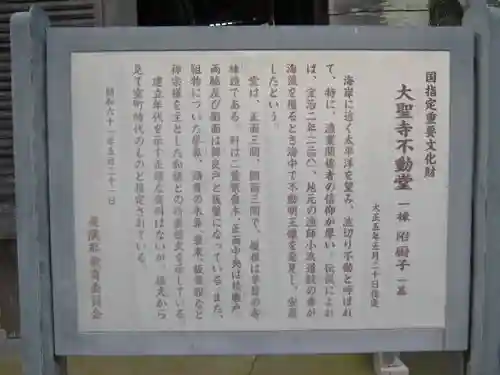 国指定重要文化財
大聖寺不動堂 一棟 附厨子 一基
大正五年五月二十日指定
海岸に近く太平洋を望み、波切り不動と呼ばれ
て、特に、漁業関係者の信仰が厚い。伝説によれ
ば、地元の漁師小浜道観の妻が
海藻を採るとき海中で不動明王像を発見し、安置
したという。
堂は、正面三間、側面三間で、屋根は茅葺の寄
棟造である。斗は二重繁垂木、正面中央は桟唐戸
両脇及び側面は舞良戸と板壁になっている。また、
組物についた拳鼻、海老の木鼻、蟇束、板蟇股など
禅宗様を主とした和様との折衷様式を示している。
建立年代を示す正確な資料はないが、様式から
見て室町時代のものと推定されている。
昭和六十一年五月二十一日
夷隅町教育委員会